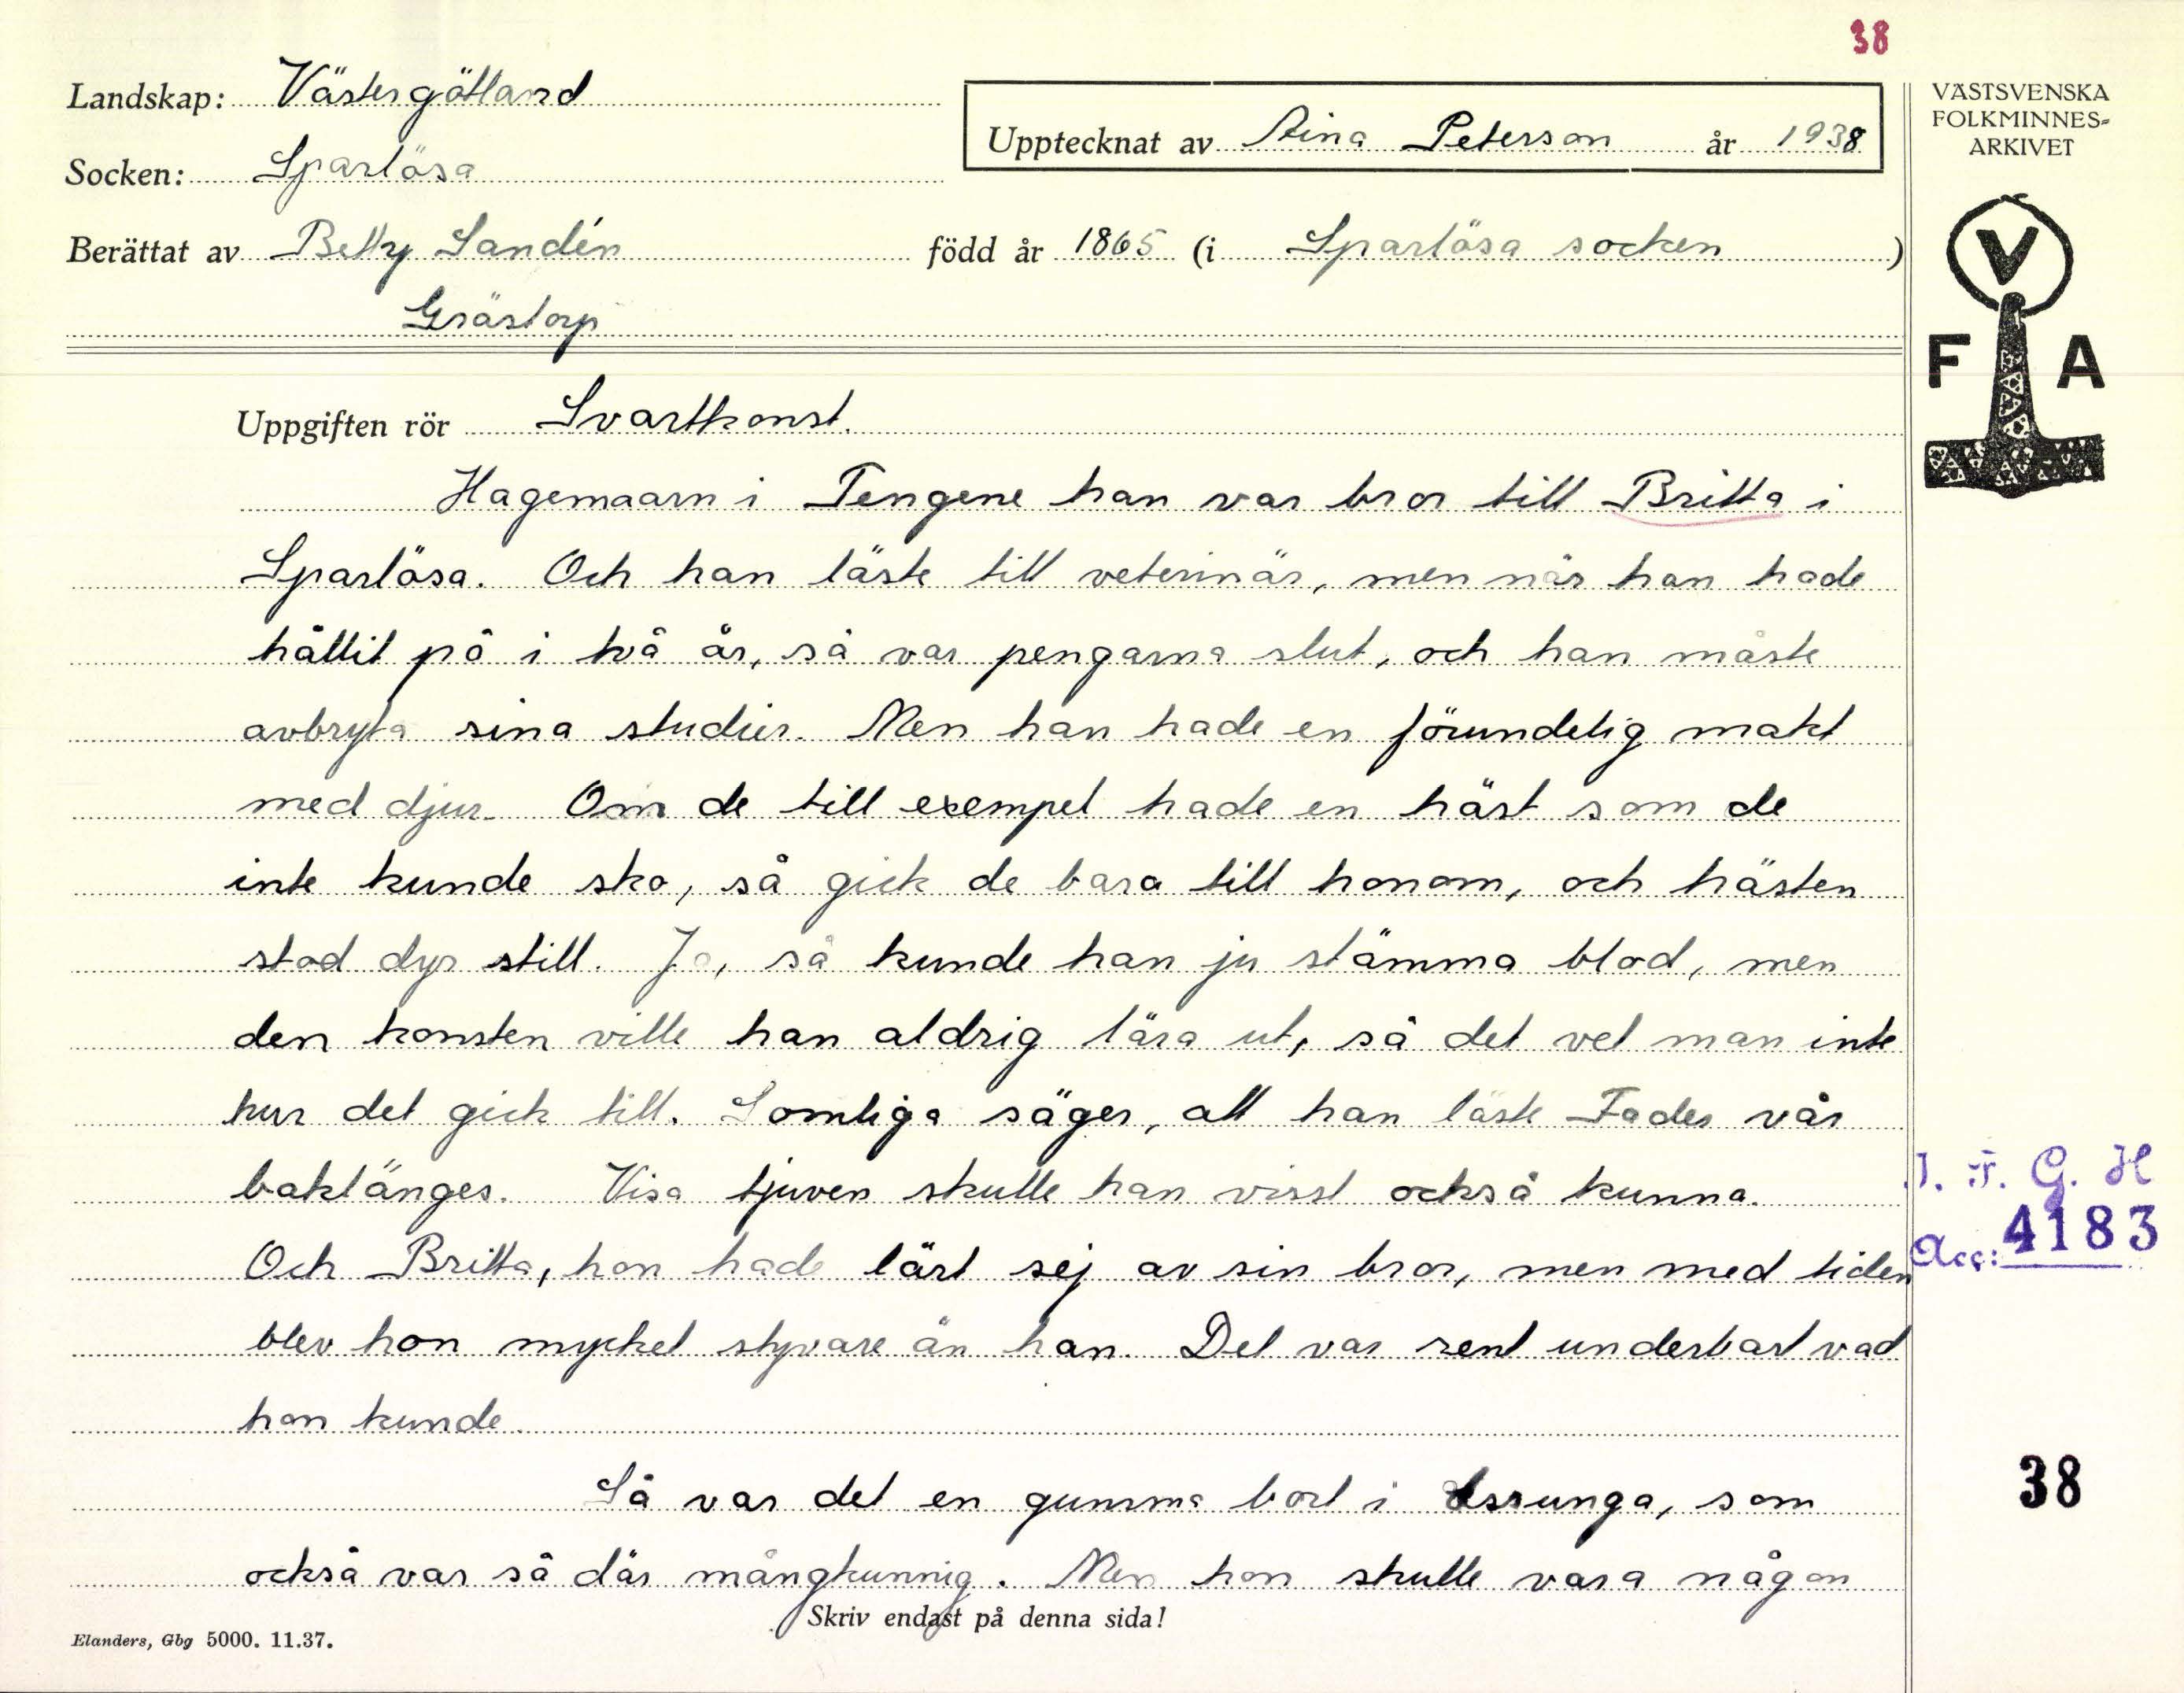 38
Landskap: Västergötland
Upptecknat av Aina Peterson år 1938
VÄSTSVENSKA
FOLKMINNES-
ARKIVET
Socken: Sparlösa
Berättat av Betty Sandén född år 1865 (i Sparlösa socken)
Grästorp
V
F A
Uppgiften rör Svartkonst.
Hagemaarn i Tengene han var bror till Britta i
Sparlösa. Och han läste till veterinär, men när han hade
hållit på i två år, så var pengarna slut, och han måste
avbryta sina studier. Men han hade en förunderlig makt
med djur. Om de till exempel hade en häst som de
inte kunde sko, så gick de bara till honom, och hästen
stod dyr still. Ja, så kunde han ju stämma blod, men
den konsten ville han aldrig lära ut, så det vet man inte
hur det gick till. Somliga säger, att han läste Fader vår
baklänges. Visa tjuven skulle han visst också kunna.
Och Britta, hon hade lärt sej av sin bror, men med tiden
blev hon mycket styvare än han. Det var rent underbart vad
hon kunde.
Så var det en gumma bort i Essunga, som
också var så där mångkunnig. Men hon skulle vara någon
I. F. G. H
Acc: 4183
38
Skriv endast på denna sida!
Elanders, Gbg 5000. 11.37.